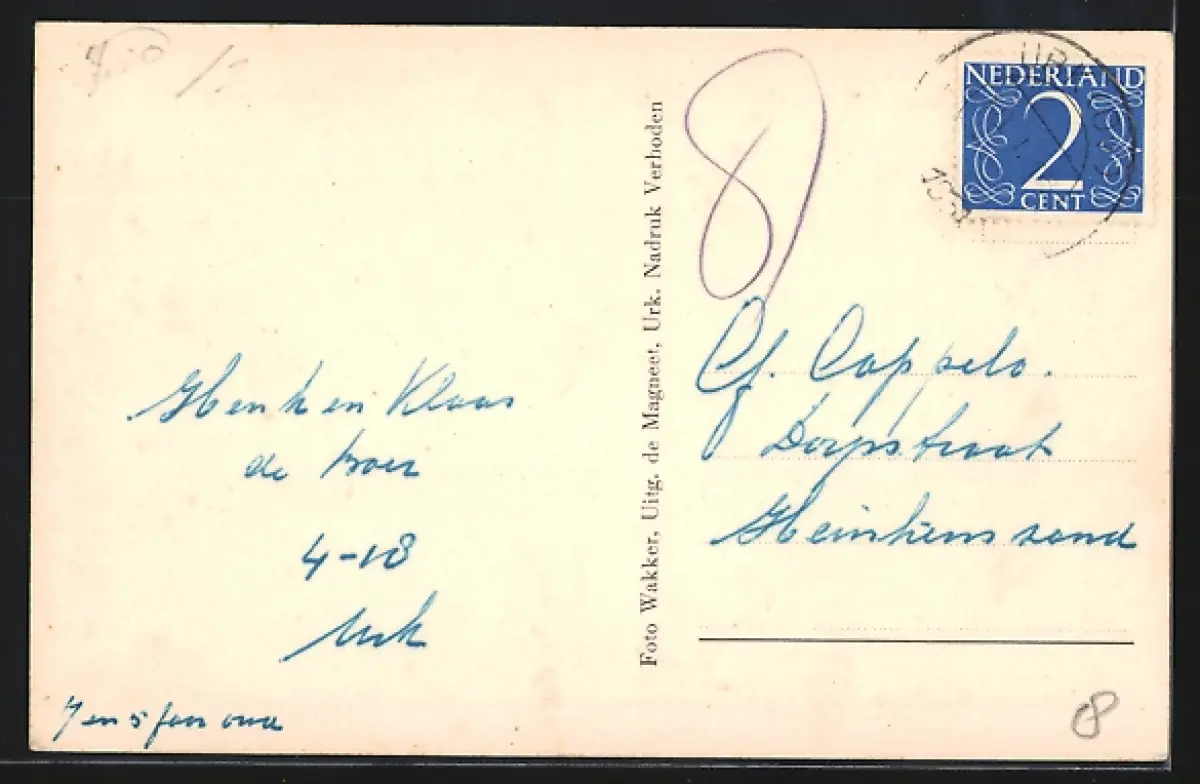 7.50 /-
Henk en Klaas
de Boer
4-18
Urk
7 en 5 jaar oud
Foto Wakker, Uitg. de Magneet, Urk. Nadruk Verboden
8
URK
NEDERLAND
2
CENT
Cappelo.
Dorpstraat
Heinkenszand
8